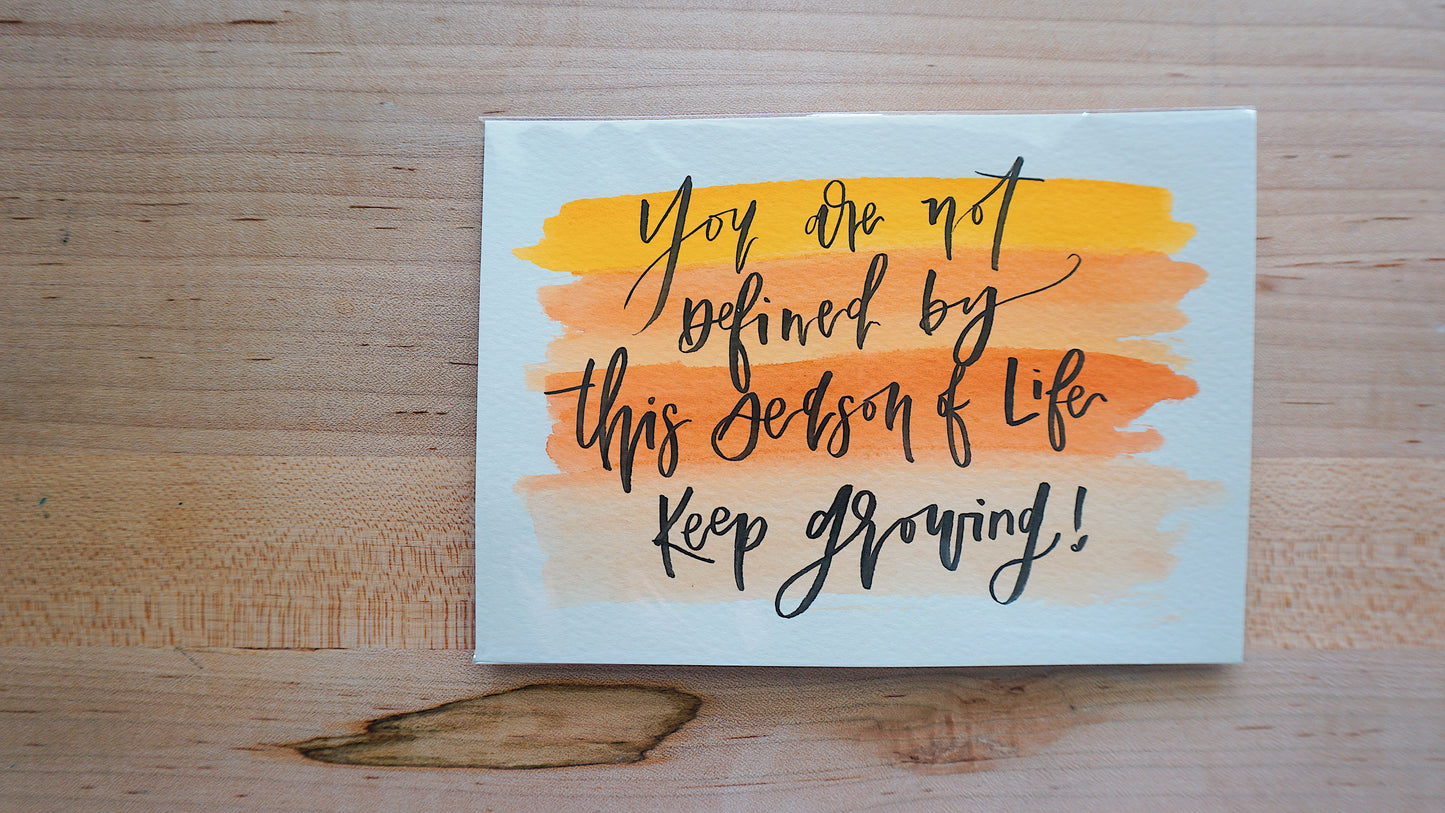 You are not
Defined by
this season of Life
Keep growing!